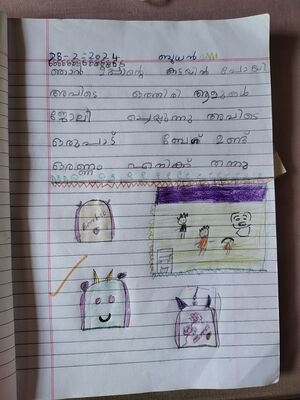 28-2-2024 ബുധൻ
ഞാൻ കടയിൽ പോയി
അവിടെ ഒത്തിരി ആളുകൾ
ജോലി ചെയ്യുന്നു അവിടെ
ഒരുപാട് ബേഗ് ഉണ്ട്
ഒരണ്ണം എനിക്ക് തന്നു